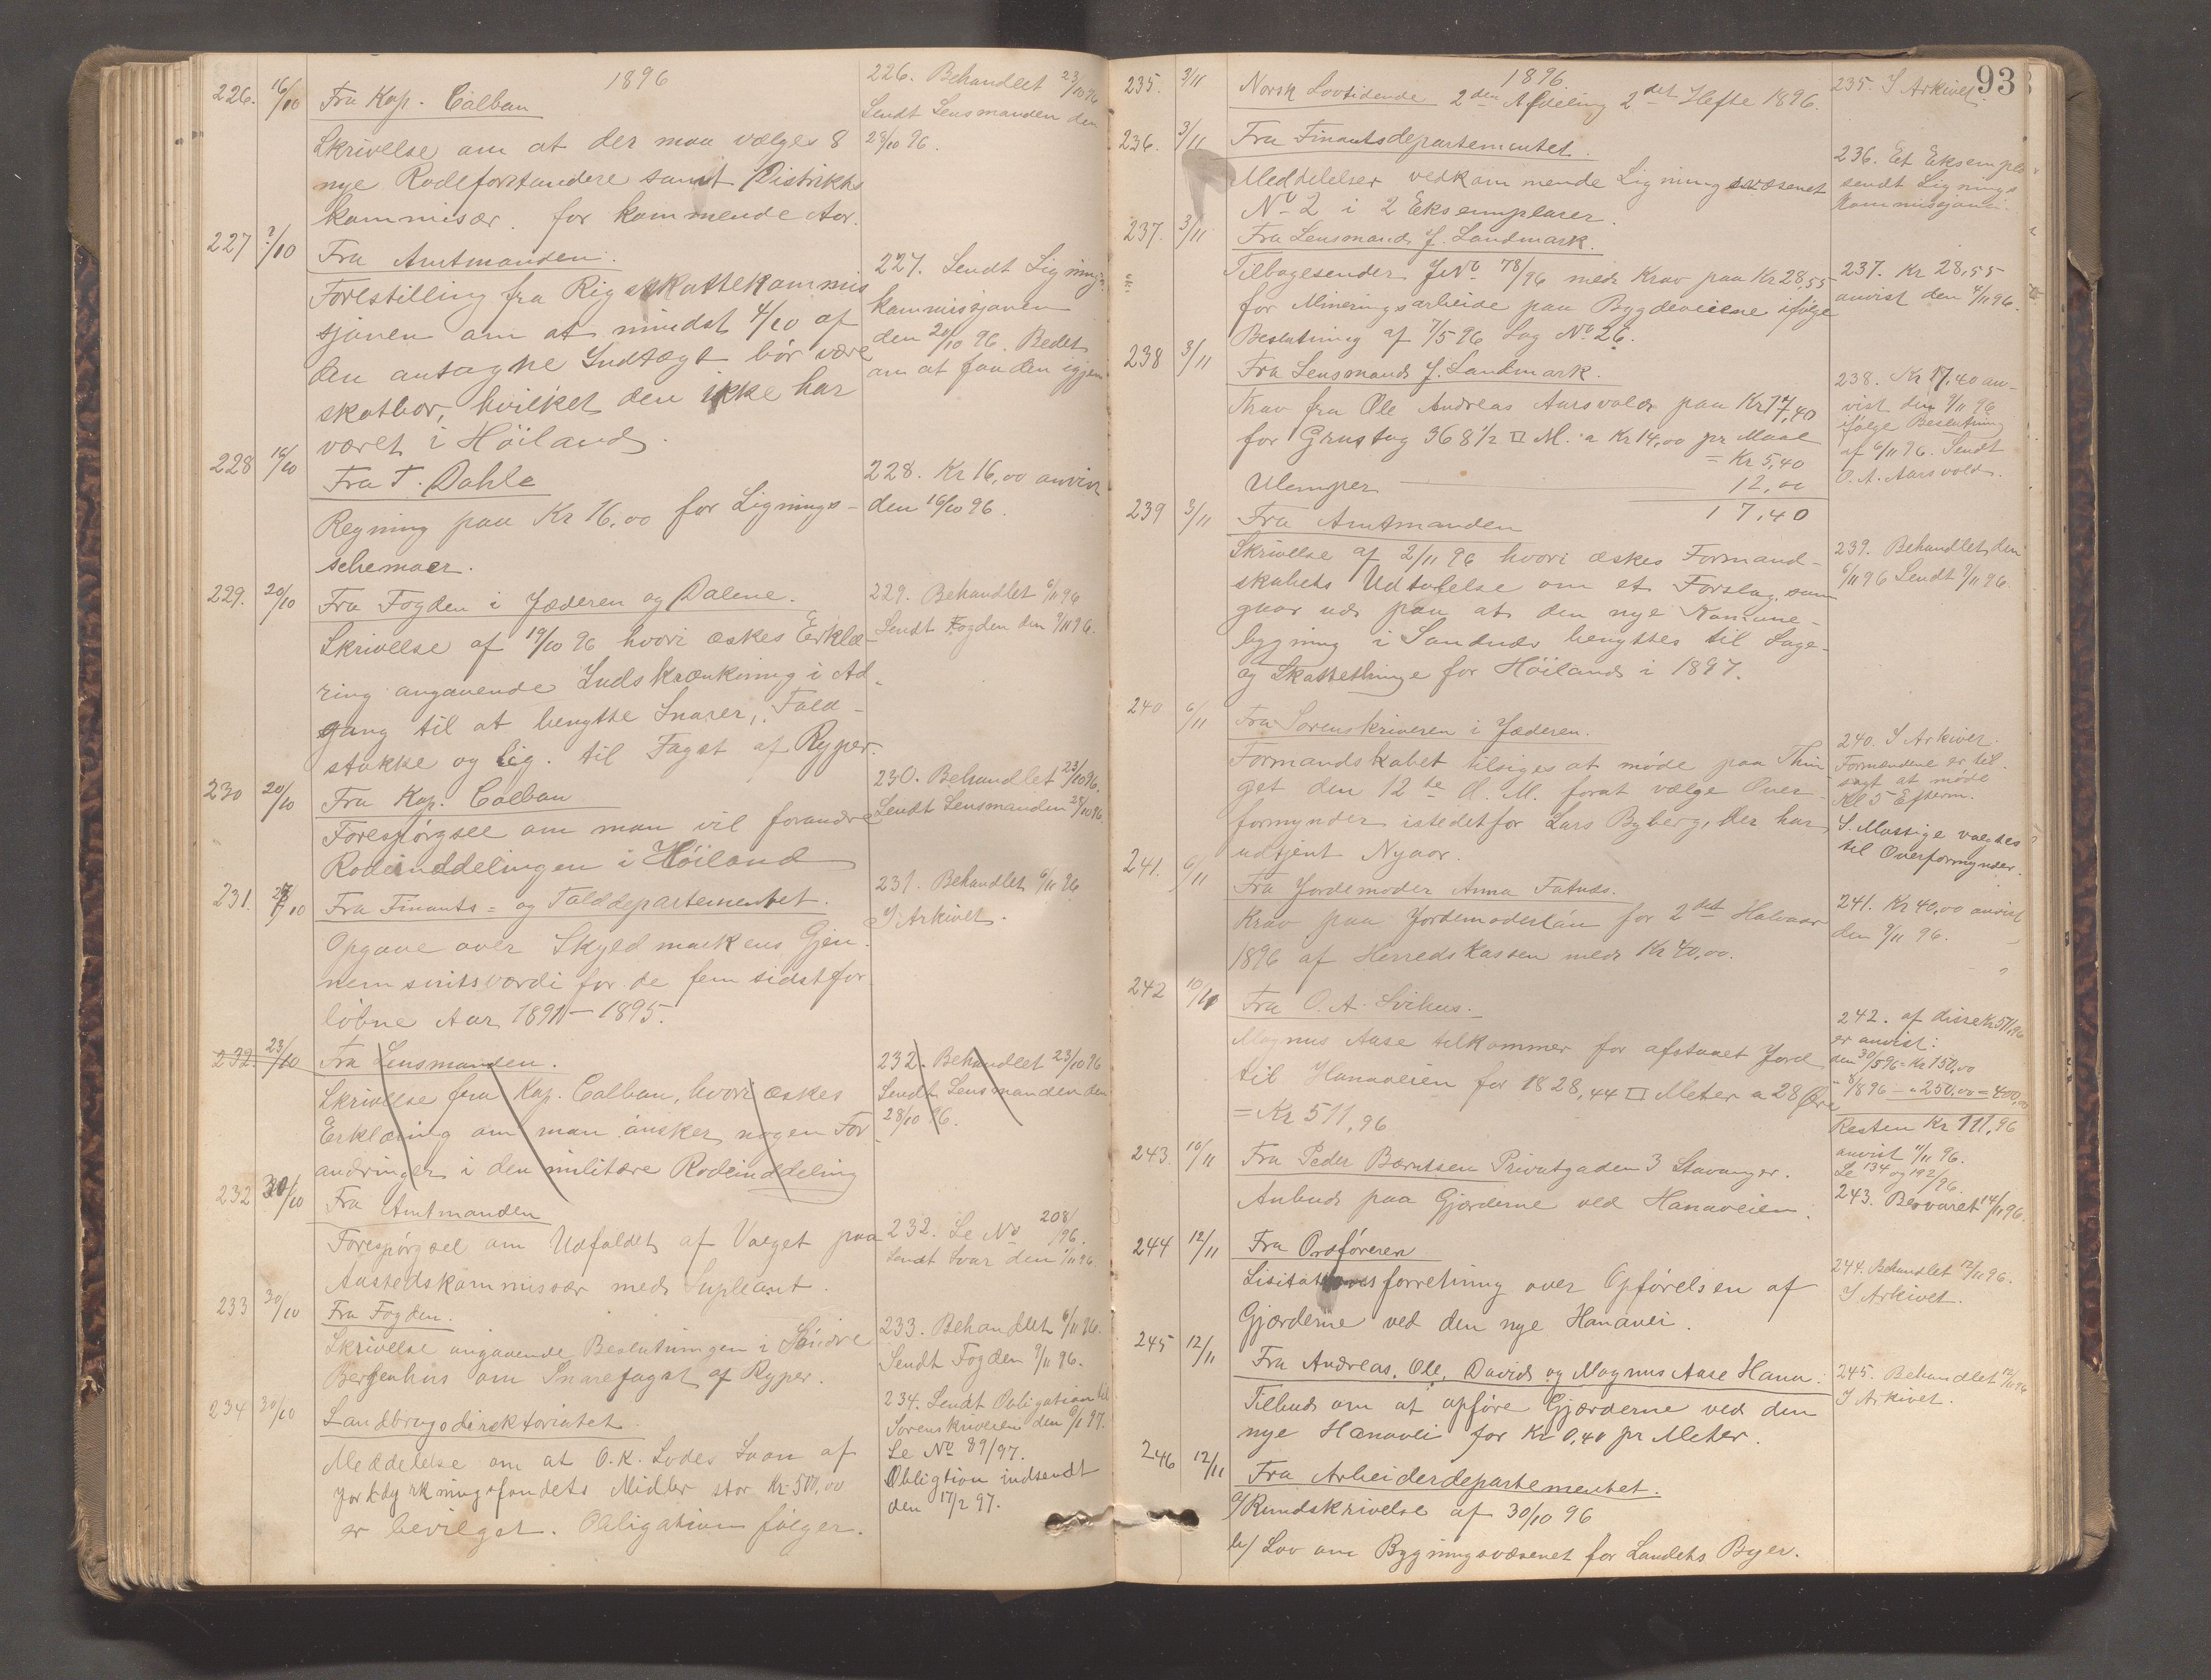 1896
226. 16/10 Fra Kap. Calban
Skrivelse om at der maa vælges 8
nye Rodeforstandere samt Distrikts
kommisær for kommende Aar.
226. Behandlet 23/10 96
Sendt Lensmanden den
28/10 96.
227 ?/10 Fra Amtmanden.
Forestilling fra Rigsskattekommis
sjonen om at mindst 4/10 af
den antagne Indtægt bör være
skatbar, hvilket den ikke har
været i Höiland.
227. Sendt Lignings
kommissjonen
den 20/10 96. Bedet
om at faa den igjen
228 16/10 Fra T. Dahle
Regning paa Kr 16,00 for Lignings-
schemaer.
228. Kr 16,00 anvist
den 16/10 96.
229. 20/10 Fra Fogden i Jæderen og Dalene.
Skrivelse af 19/10 96 hvori æskes Erklæ-
ring angaaende Indskrænkning i Ad-
gang til at benytte Snarer, Fald-
stokke og lig. til Fagst af Ryper.
229. Behandlet 6/11 96
Sendt Fogden den 9/11 96.
230 20/10 Fra Kap. Calban
Forespörgsel om man vil forandre
Rodeinddelingen i Höiland
230. Behandlet 23/10 96.
Sendt Lensmanden 28/10 96.
231. 27/10 Fra Finants- og Tolddepartementet.
Opgave over Skyldmarkens Gjen-
nemsnitsværdi for de fem sidst for
löbne Aar 1891-1895.
231. Behandlet 6/11 96
I Arkivet.
232. 23/10 Fra Lensmanden.
Skrivelse fra Kap. Calban, hvori æskes
Erklæring om man ønsker nogen For
andringer i den militære Rodeinddeling
232. Behandlet 23/10 96
Sendt Lensmanden den
28/10 96.
232 30/10 Fra Amtmanden
Forespörgsel om Udfaldet af Valget paa
Aastedskommissær med Supleant.
232. Se No 208/96.
Sendt Svar den 1/11 96.
233 30/10 Fra Fogden.
Skrivelse angaaende Beslutningen i Söndre
Bergenhus om Snarefagst af Ryper.
233. Behandlet 6/11 96.
Sendt Fogden 9/11 96.
234 30/10 Landbrugsdirektoriatet.
Meddelelse om at O. K. Lodes Laan af
Jorddyrkningsfondets Midler stor Kr 500,00
er bevilget. Obligation følger.
234. Sendt Obligation til
Sorenskriveren den 6/1 97.
Se No 89/97.
Obligtion indsendt
den 17/2 97.
93
1896.
235. 3/11 Norsk Lovtidende 2den Afdeling 2det Hefte 1896.
235. I Arkivet.
236. 3/11 Fra Finantsdepartementet.
Meddelelser vedkommende Ligningsvæsenet
No 2 i 2 Eksemplarer.
236. Et Eksempla
sendt Lignings
kommissjonen.
237. 3/11 Fra Lensmand J. Landmark.
Tilbagesender JNo 78/96 med Krav paa Kr 28,55
for Mineringsarbeide paa Bygdeveiene ifölge
Beslutning af 7/5 96 Sag No 26.
237. Kr 28,55
anvist den 4/11 96.
238 3/11 Fra Lensmand J. Landmark.
Krav fra Ole Andreas Aarsvold paa Kr 17,40
for Grustag 368 1/2 □ M. a Kr 14,00 pr Maal
= Kr 5,40
Ulemper 12,00
17,40
238. Kr 17,40 an-
vist den 9/11 96
ifølge Beslutning
af 6/11 96. Sendt
O. A. Aarsvold.
239 3/11 Fra Amtmanden
Skrivelse af 2/11 96 hvori æskes Formand-
skabets Udtalelse om et Forslag, som
gaar ud paa at den nye Kommune-
bygning i Sandnes benyttes til Sage-
og Skattethinge for Höiland i 1897.
239. Behandlet den
6/11 96 Sendt 9/11 96.
240 6/11 Fra Sorenskriveren i Jæderen.
Formandskabet tilsiges at møde paa Thin
get den 12te d. M. forat vælge Over-
formynder istedetfor Lars Byberg, der har
udtjent Nyaar.
240. I Arkivet.
Formændene er til-
sagt at møde
Kl 5 Efterm.
S. Mossige valgtes
til Overformynder.
241. 6/11 Fra Jordemoder Anna Fatnes.
Krav paa Jordemoderlön for 2det Halvaar
1896 af Herredskassen med Kr 40,00.
241. Kr 40,00 anvist
den 9/11 96.
242 10/11 Fra O. A. Svihus.
Magnus Aase tilkommer for afstaaet Jord
til Hanaveien for 1828,44 □ Meter a 28 Øre
= Kr 511,96
242. af disse Kr 511,96
er anvist:
den 30/5 96 = Kr 150,00
" 8/8 96 - " 250,00 = 400,00
Resten Kr 111,96
anvist 11/11 96.
Se 134 og 192/96.
243. 10/11 Fra Peder Berntsen Privatgaden 3 Stavanger.
Anbud paa Gjærderne ved Hanaveien.
243. Besvaret 14/11 96.
244 12/11 Fra Ordføreren
Lisitationsforretning over Opførelsen af
Gjærderne ved den nye Hanavei.
244. Behandlet 12/11 96.
I Arkivet.
245 12/11 Fra Andreas, Ole, David og Magnus Aase Hana:
Tilbud om at opføre Gjærderne ved den
nye Hanavei for Kr 0,40 pr Meter.
245. Behandlet 12/11 96
I Arkivet.
246 12/11 Fra Arbeiderdepartementet.
a/ Rundskrivelse af 30/10 96
b/ Lov om Bygningsvæsenet for Landets Byer.